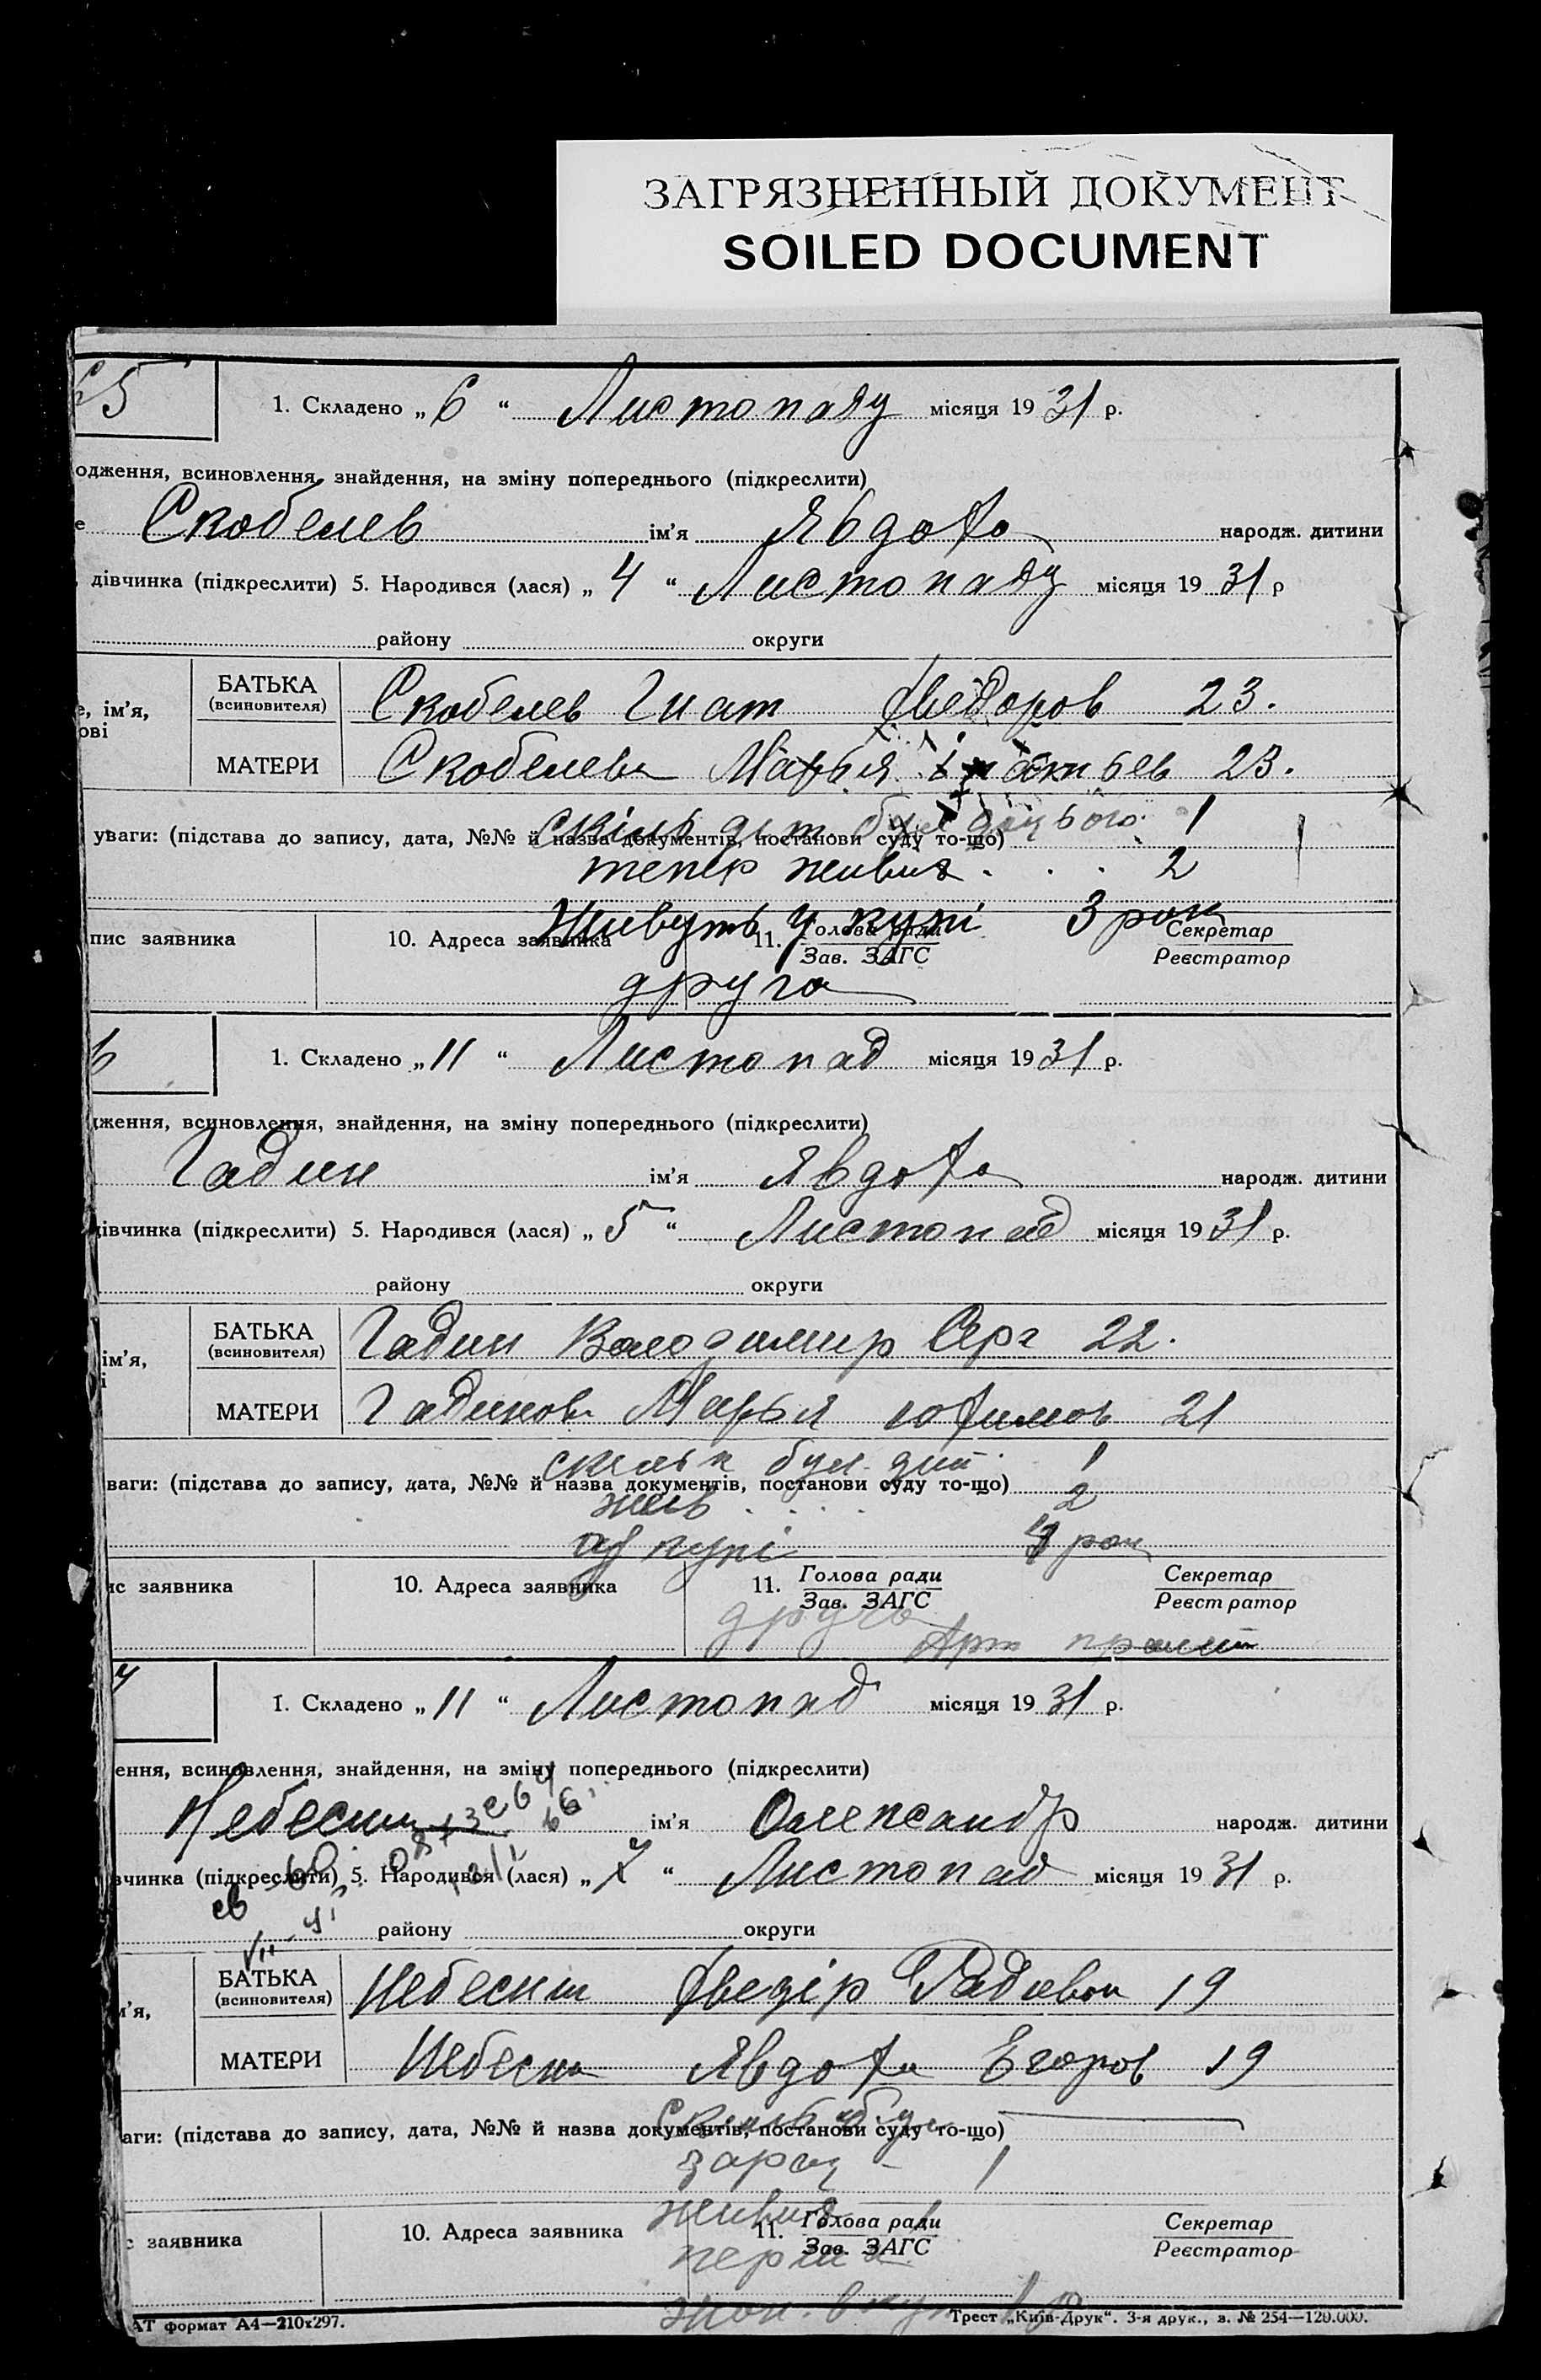 ЗАГРЯЗНЕННЫЙ ДОКУМЕНТ
SOILED DOCUMENT
5
1. Складено „ 6 “ Листопаду місяця 19 31 р.
одження, всиновлення, знайдення, на зміну попереднього (підкреслити)
е Скобелев ім’я Явдоха народж. дитини
дівчинка (підкреслити) 5. Народився (лася) „ 4 “ Листопаду місяця 19 31 р
району округи
е, ім’я,
ові
БАТЬКА
(всиновителя)
Скобелев Гнат Федоров 23.
МАТЕРИ Скобелева Марья 23.
скіль 1
уваги: (підстава до запису, дата, №№ й назва документів, постанови суду то-що)
тепер живих . . . 2
Живуть у купі 3 рок
пис заявника 10. Адреса заявника 11. Голова ради
Зав. ЗАГС
Секретар
Реєстратор
друга
6
1. Складено „ 11 “ Листопад місяця 19 31 р.
дження, всиновлення, знайдення, на зміну попереднього (підкреслити)
Гадин ім’я Явдоха народж. дитини
дівчинка (підкреслити) 5. Народився (лася) „ 5 “ Листопад місяця 19 31 р.
району округи
ім’я,
і
БАТЬКА
(всиновителя)
Гадин Володимир Серг 22.
МАТЕРИ Гадинова Марья Юхимов 21
1
ваги: (підстава до запису, дата, №№ й назва документів, постанови суду то-що)
жив . . . . 2
купі рок
ис заявника 10. Адреса заявника 11. Голова ради
Зав. ЗАГС
Секретар
Реєстратор
друга
Арт
7
1. Складено „ 11 “ Листопад місяця 19 31 р.
ення, всиновлення, знайдення, на зміну попереднього (підкреслити)
ім’я Олександр народж. дитини
вчинка (підкреслити) 5. Народився (лася) „ 7 “ Листопад місяця 19 31 р.
району округи
м’я,
БАТЬКА
(всиновителя)
Федір 19
МАТЕРИ Явдоха Егоров 19
аги: (підстава до запису, дата, №№ й назва документів, постанови суду то-що)
зараз - 1
живих
с заявника 10. Адреса заявника 11. Голова ради
Зав. ЗАГС
Секретар
Реєстратор
перша
АТ формат А4—210х297. Трест „Київ-Друк“. 3-я друк., з. № 254—120.000.